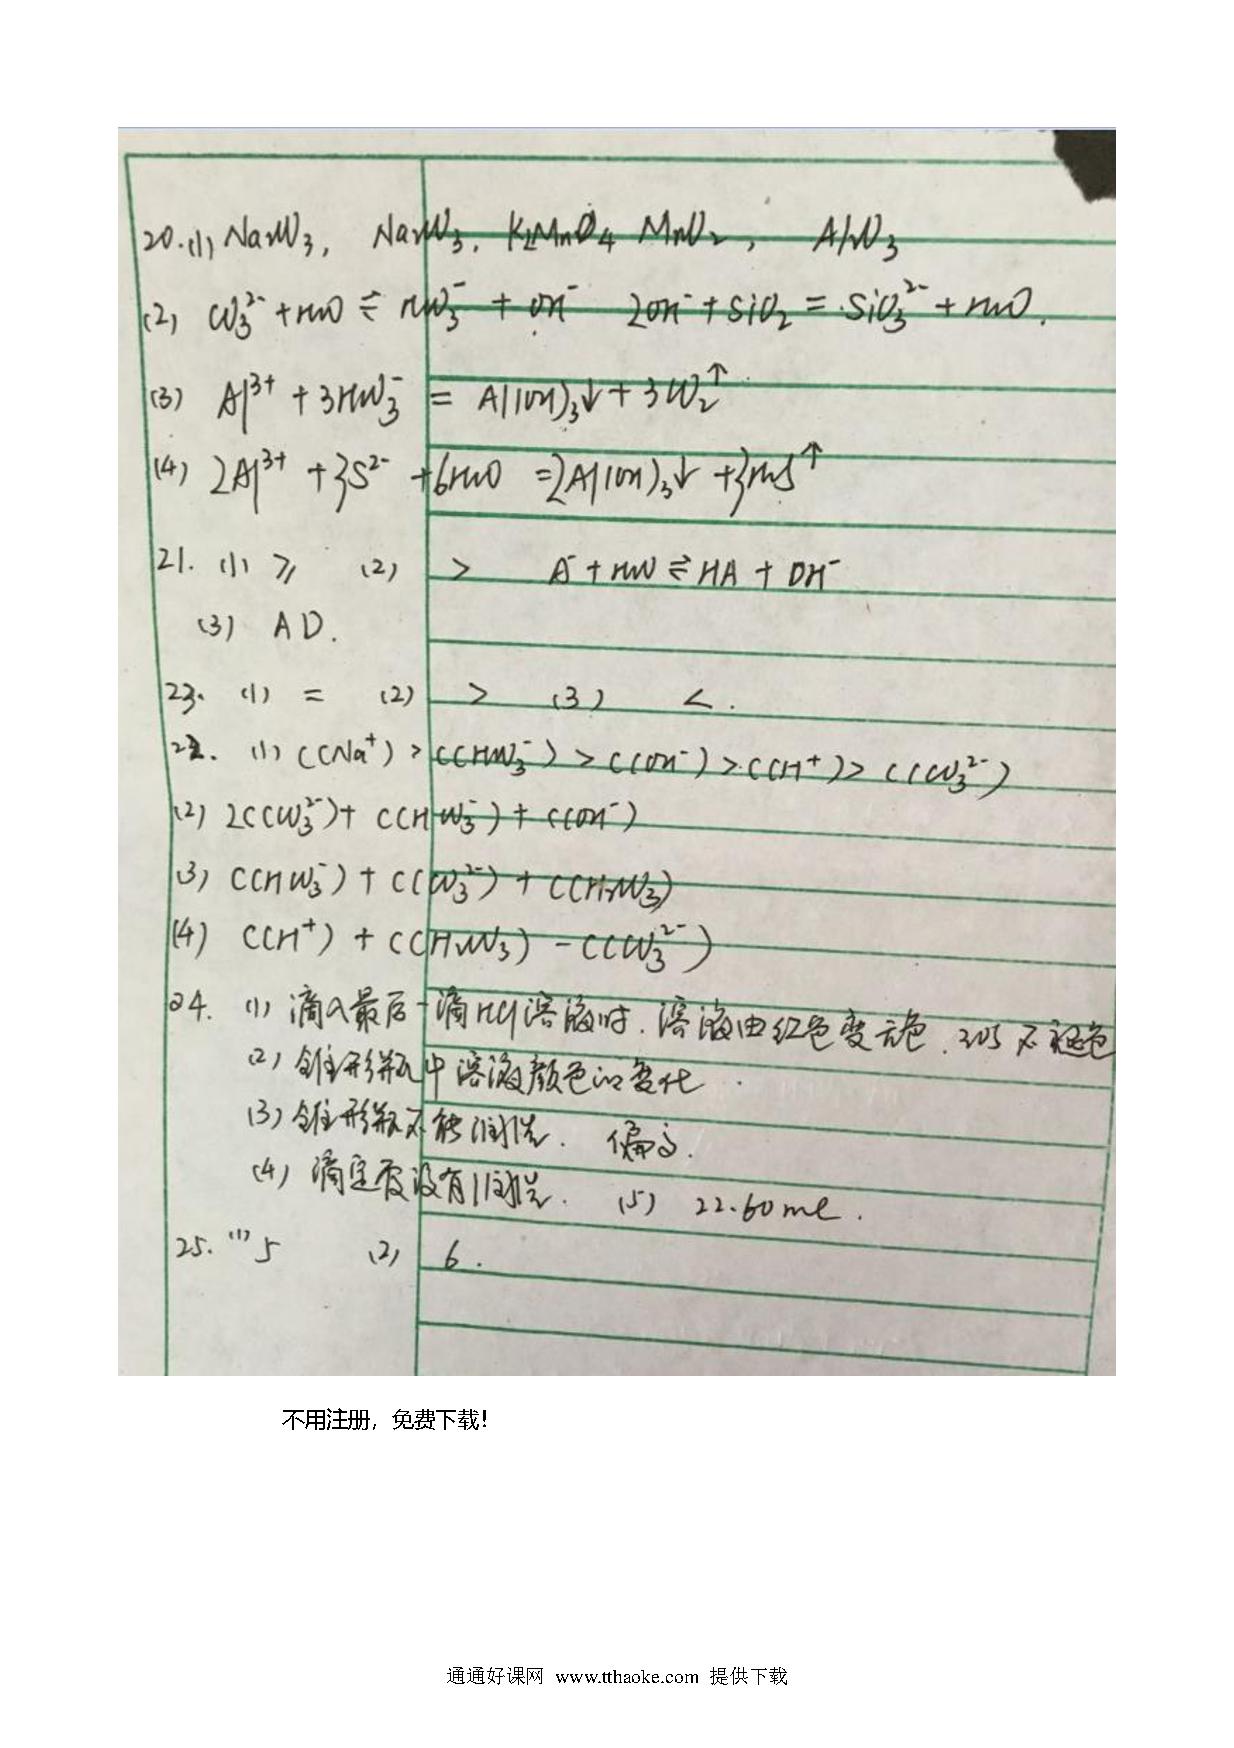 20.(1) Na₂CO₃, Na₂CO₃, K₂MnO₄ MnO₂, Al₂O₃
(2) CO₃²⁻+H₂O ⇌ HCO₃⁻ + OH⁻ 2OH⁻+SiO₂=SiO₃²⁻+H₂O.
(3) Al³⁺ + 3HCO₃⁻ = Al(OH)₃↓+3CO₂↑
(4) 2Al³⁺ +3S²⁻ +6H₂O =2Al(OH)₃↓ +3H₂S↑
21. (1) ≥ (2) > A⁻+H₂O⇌HA + OH⁻
(3) AD.
23. (1) = (2) > (3) <.
22. (1) C(Na⁺)>C(HCO₃⁻)>C(OH⁻)>C(H⁺)>C(CO₃²⁻)
(2) 2C(CO₃²⁻)+ C(HCO₃⁻)+C(OH⁻)
(3) C(HCO₃⁻)+C(CO₃²⁻)+C(H₂CO₃)
(4) C(H⁺)+C(H₂CO₃)-C(CO₃²⁻)
24. (1) 滴入最后一滴HCl溶液时.溶液由红色变无色.30S不褪色
(2) 锥形瓶中溶液颜色的变化
(3) 锥形瓶不能润洗. 偏高.
(4) 滴定管没有润洗. (5) 22.60mL.
25. (1) 5 (2) 6.
不用注册，免费下载！
通通好课网 www.tthaoke.com 提供下载